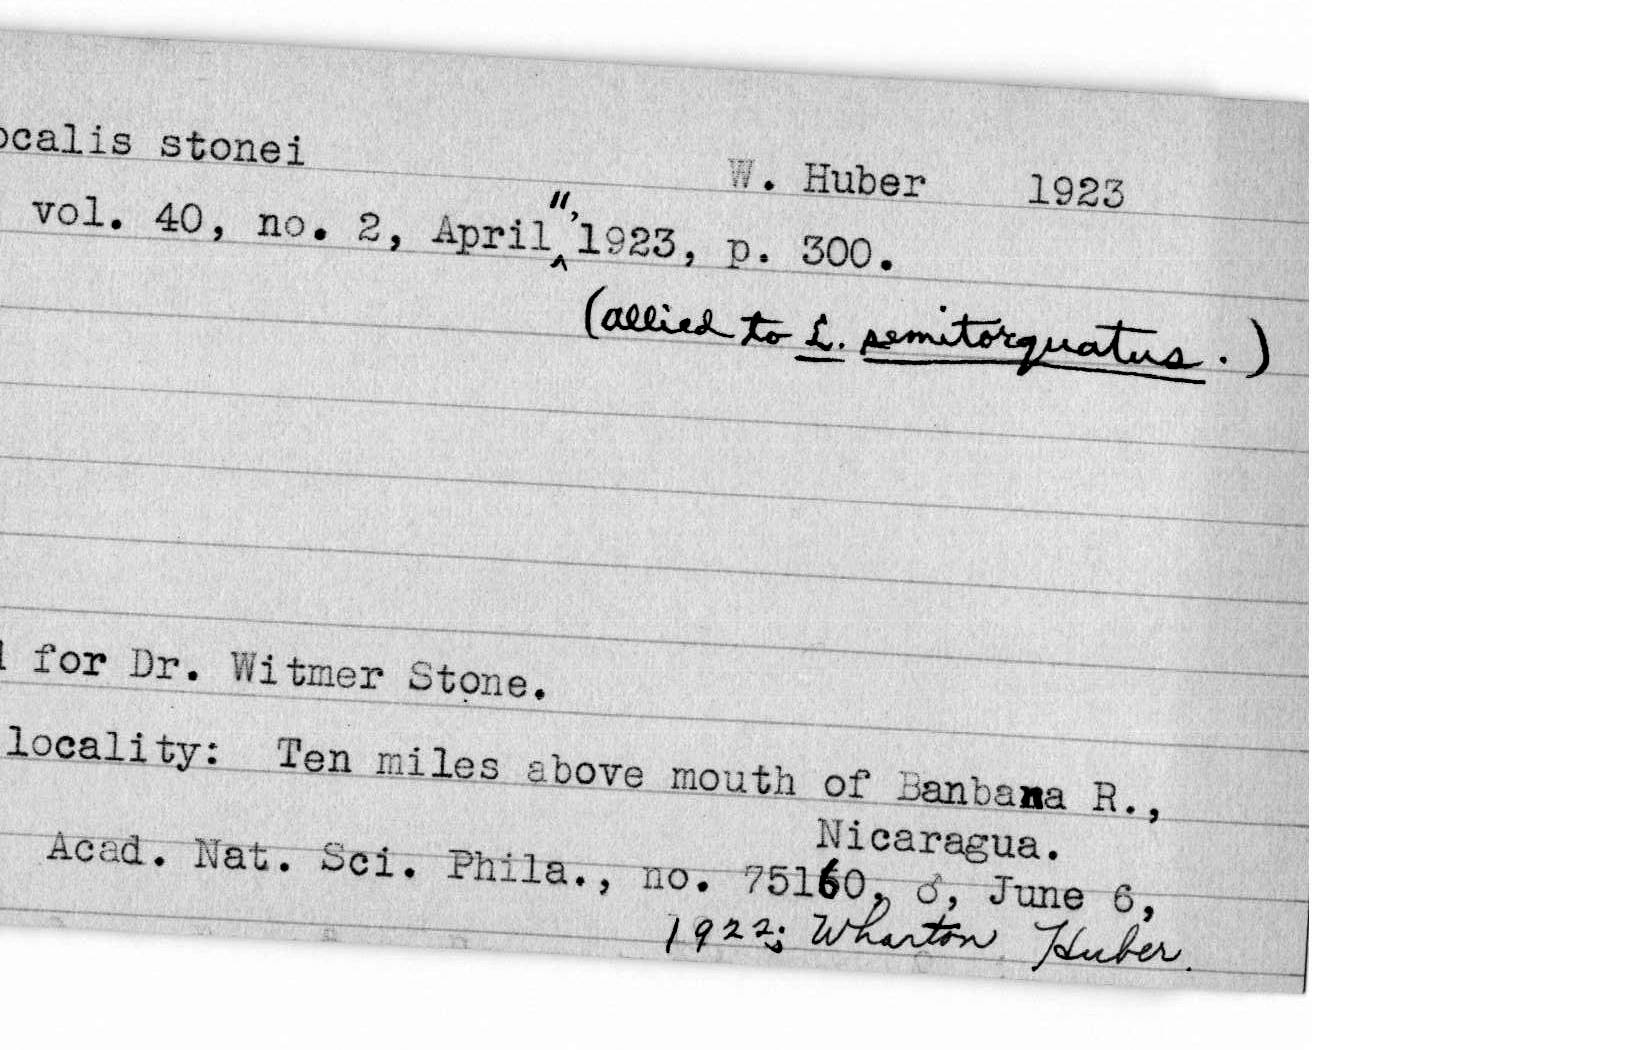 ocalis stonei
W. Huber 1923
vol. 40, no. 2, April 11, 1923, p. 300.
(allied to L. semitorquatus.)
for Dr. Witmer Stone.
locality: Ten miles above mouth of Banbana R.,
Nicaragua.
Acad. Nat. Sci. Phila., no. 75160, ♂, June 6,
1922; Wharton Huber.